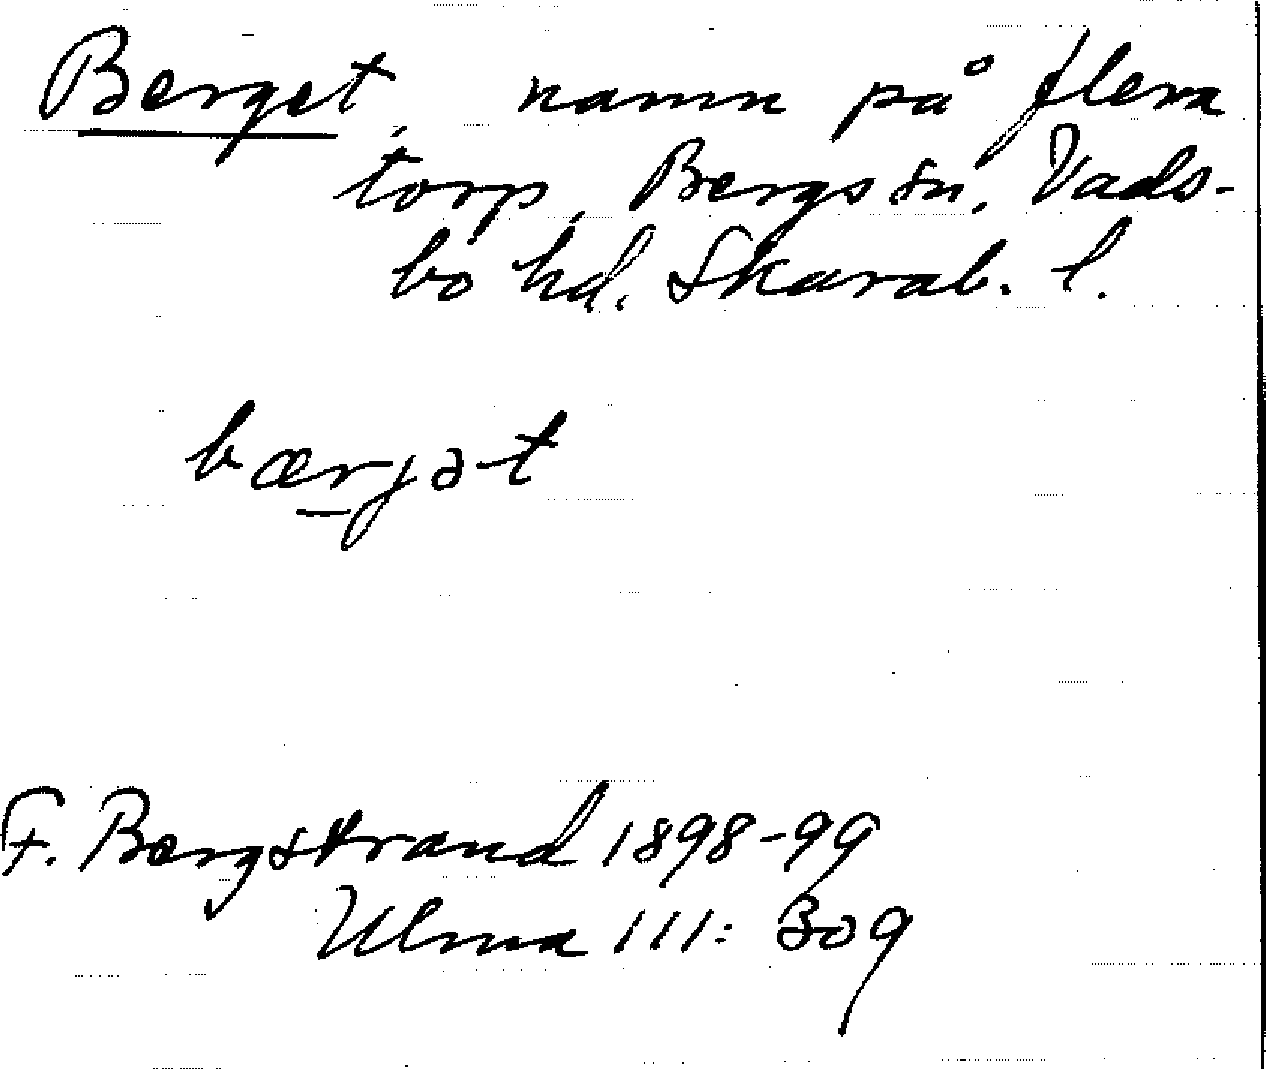 Berget, namn på flera
torp, Bergs sn, Vads-
bo hd. Skarab. l.
bærjət
F. Bergstrand 1898-99
Ulma 111: 309